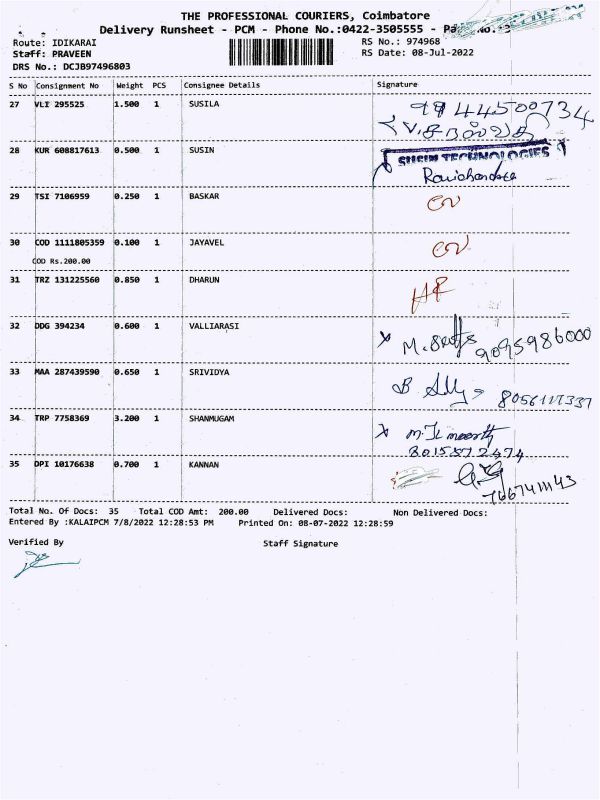 THE PROFESSIONAL COURIERS, Coimbatore
Delivery Runsheet - PCM - Phone No.:0422-3505555 -
Route: IDIKARAI
Staff: PRAVEEN
DRS No.: DCJB97496803
RS No.: 974968
RS Date: 08-Jul-2022
S No Consignment No Weight PCS Consignee Details Signature
27 VLI 295525 1.500 1 SUSILA 9944500734
28 KUR 608817613 0.500 1 SUSIN SUSIN TECHNOLOGIES
29 TSI 7106959 0.250 1 BASKAR
30 COD 1111805359 0.100 1 JAYAVEL
COD Rs.200.00
31 TRZ 131225560 0.850 1 DHARUN
32 DDG 394234 0.600 1 VALLIARASI 9095986000
33 MAA 287439590 0.650 1 SRIVIDYA
34 TRP 7758369 3.200 1 SHANMUGAM
8015572474
35 DPI 10176638 0.700 1 KANNAN
Total No. Of Docs: 35 Total COD Amt: 200.00 Delivered Docs: Non Delivered Docs:
Entered By :KALAIPCM 7/8/2022 12:28:53 PM Printed On: 08-07-2022 12:28:59
Verified By Staff Signature